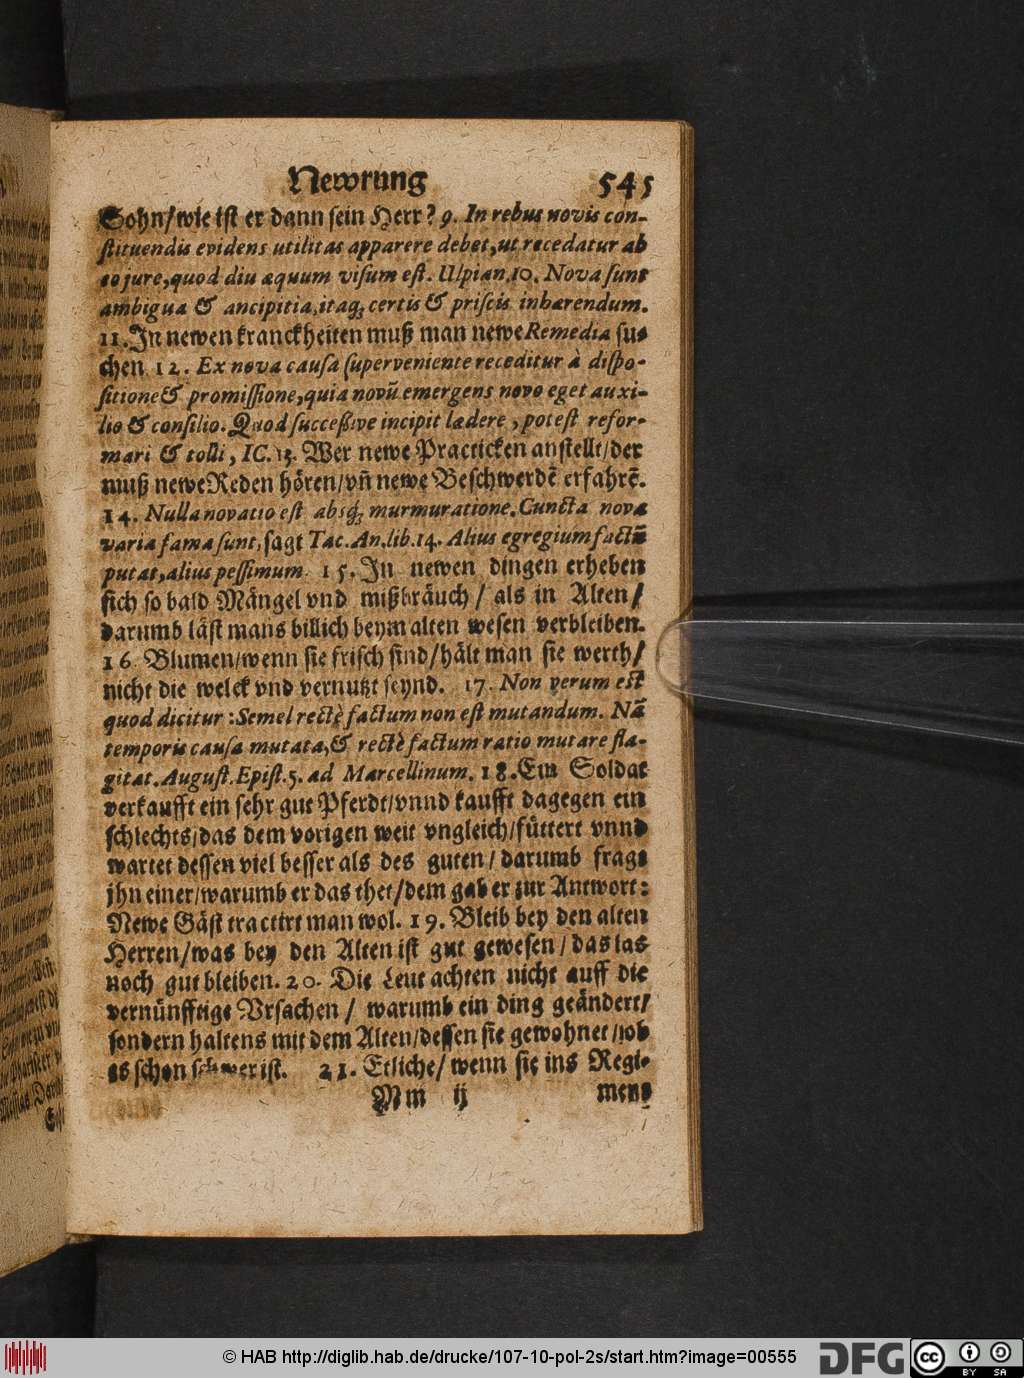 Newrung 545
Sohn/wie ist er dann sein Herr? 9. In rebus novis con-
stituendis evidens utilitas apparere debet, ut recedatur ab
eo jure, quod diu æquum visum est. Ulpian. 10. Nova sunt
ambigua & ancipitia, itaq; certis & priscis inhærendum.
11. In newen kranckheiten muß man newe Remedia su-
chen 12. Ex nova causa superveniente receditur à dispo-
sitione & promissione, quia novũ emergens novo eget auxi-
lio & consilio. Quod successive incipit lædere, potest refor-
mari & tolli, IC. 13. Wer newe Practicken anstellt/der
muß newe Reden hören/vñ newe Beschwerdẽ erfahrẽ.
14. Nulla novatio est absq; murmuratione. Cuncta nova
varia fama sunt, sagt Tac. An. lib. 14. Alius egregium factũ
putat, alius pessimum. 15. In newen dingen erheben
sich so bald Mängel vnd mißbräuch / als in Alten/
darumb läst mans billich beym alten wesen verbleiben.
16. Blumen/wenn sie frisch sind/hält man sie werth/
nicht die welck vnd vernutzt seynd. 17. Non verum est
quod dicitur: Semel rectè factum non est mutandum. Nã
temporis causa mutata, & rectè factum ratio mutare fla-
gitat. August. Epist. 5. ad Marcellinum. 18. Ein Soldat
verkaufft ein sehr gut Pferdt/vnnd kaufft dagegen ein
schlechts/das dem vorigen weit vngleich/füttert vnnd
wartet dessen viel besser als des guten / darumb fragt
jhn einer/warumb er das thet/dem gab er zur Antwort:
Newe Gäst tractirt man wol. 19. Bleib bey den alten
Herren/was bey den Alten ist gut gewesen / das las
noch gut bleiben. 20. Die Leut achten nicht auff die
vernünfftige Vrsachen / warumb ein ding geändert/
sondern haltens mit dem Alten/dessen sie gewohnet/job
es schon schwer ist. 21. Etliche/ wenn sie ins Regi-
Mm ij ment
© HAB http://diglib.hab.de/drucke/107-10-pol-2s/start.htm?image=00555
DFG
cc BY SA